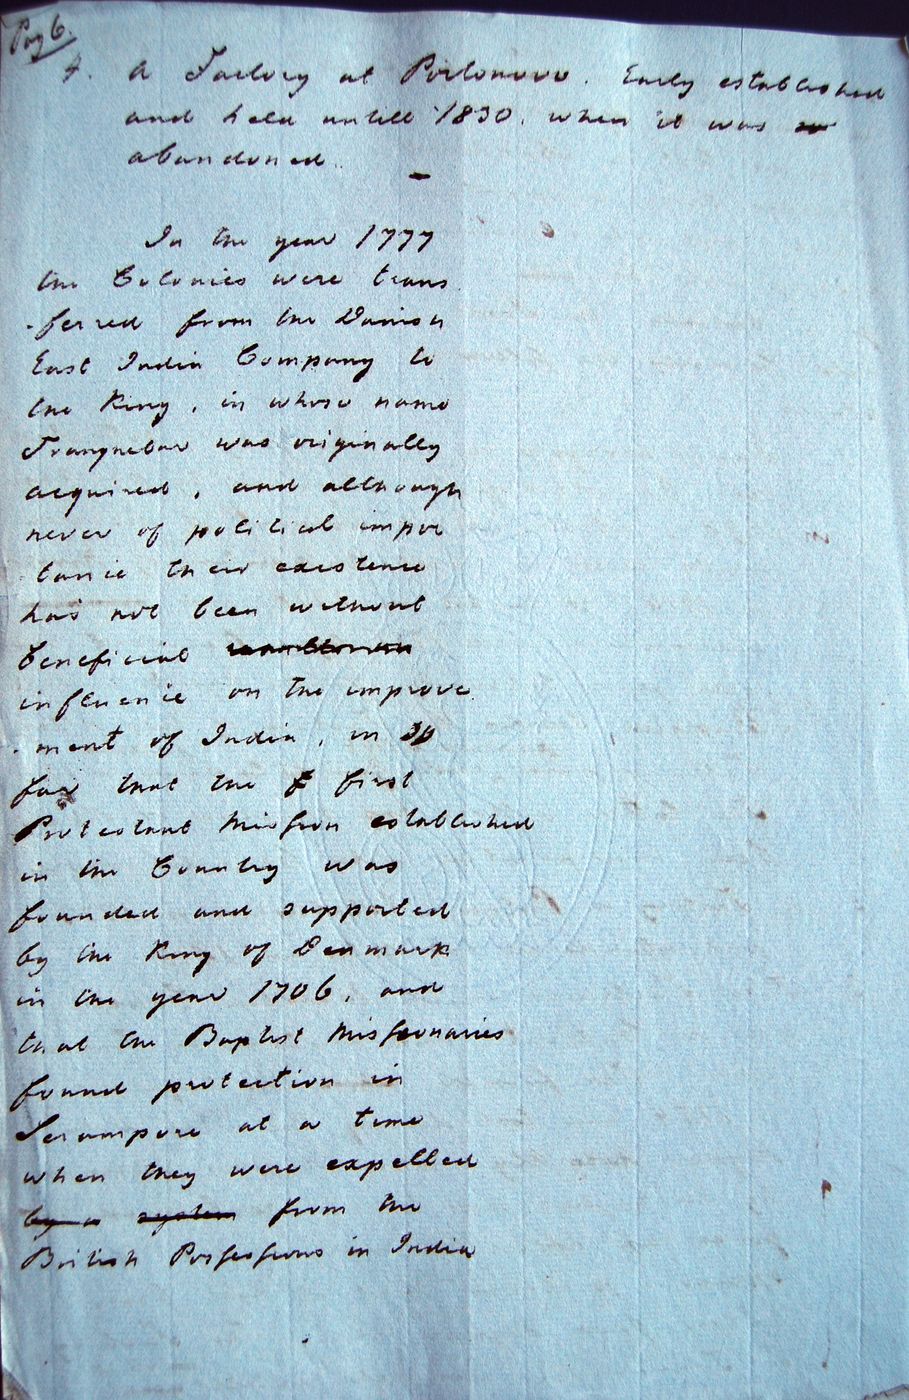 Pag 6.
4. A Factory at Portonovo. Early established
and held untill 1830, when it was
abandoned.
In the year 1777
the Colonies were trans
-ferred from the Danish
East India Company to
the King, in whose name
Tranquebar was originally
acquired, and although
never of political impor
tance their existence
has not been without
beneficial
influence on the improve
-ment of India, in so
far that the first
Protestant Mission established
in the Country was
founded and supported
by the King of Denmark
in the year 1706, and
that the Baptist Missionaries
found protection in
Serampore at a time
when they were expelled
by a system from the
British Possessions in India